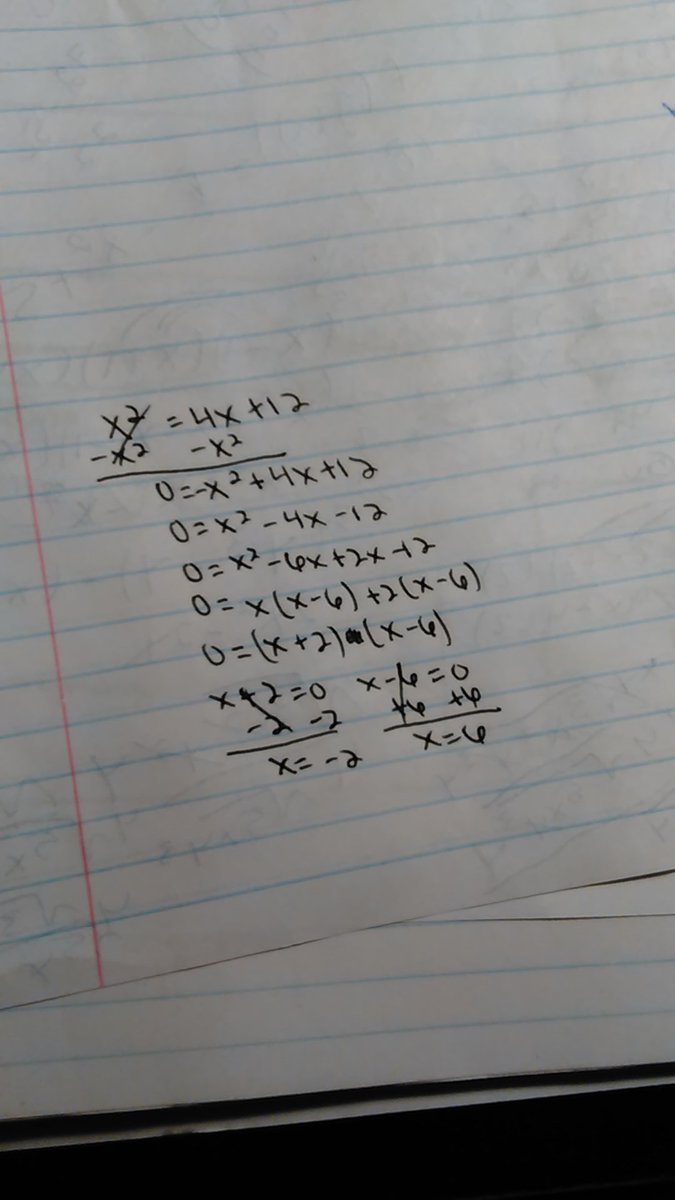 x² = 4x + 12
-x² -x²
0 = -x² + 4x + 12
0 = x² - 4x - 12
0 = x² - 6x + 2x - 12
0 = x(x-6) + 2(x-6)
0 = (x+2) (x-6)
x + 2 = 0 x - 6 = 0
-2 -2 +6 +6
x = -2 x = 6